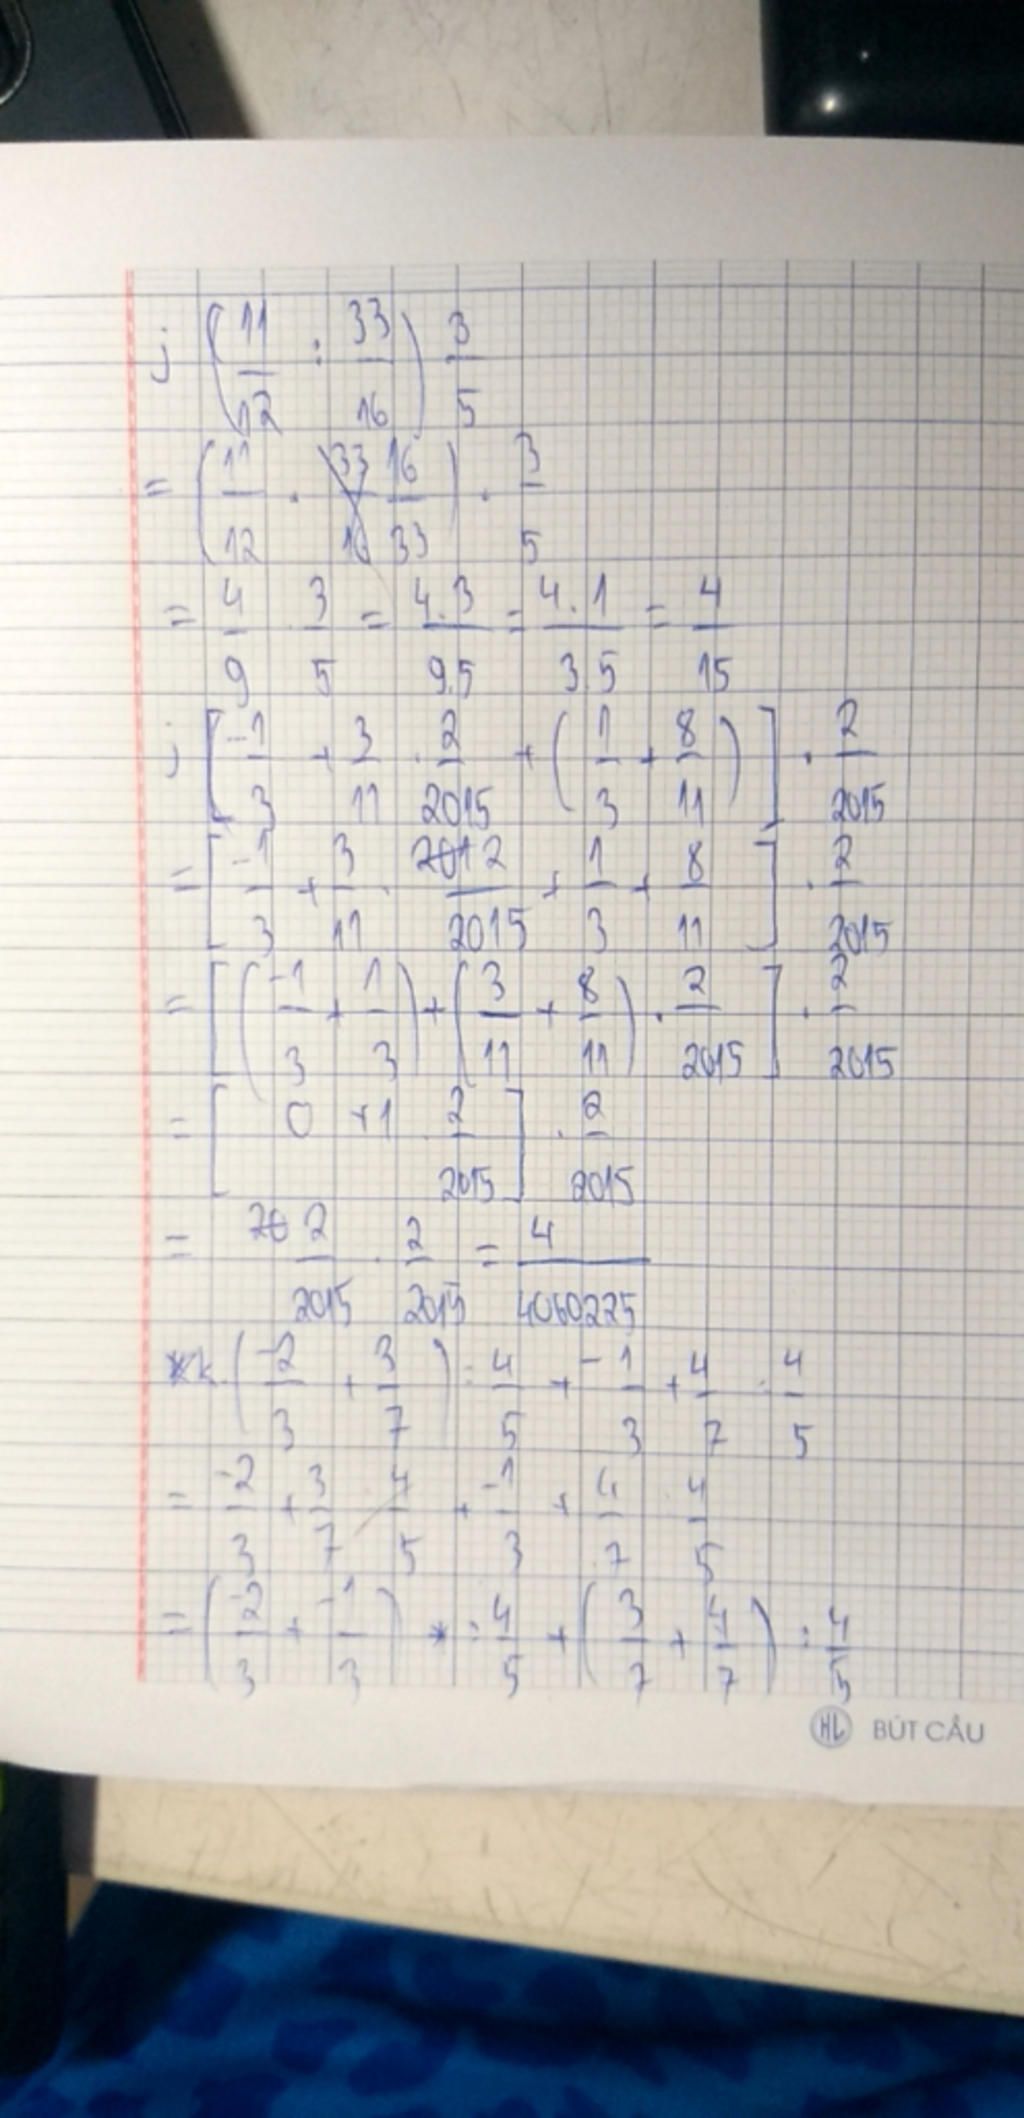 j (11/12 : 33/16) 3/5
= (11/12 . 16/33) . 3/5
= 4/9 . 3/5 = 4.3/9.5 = 4.1/3.5 = 4/15
j [-1/3 + 3/11 . 2/2015 + (1/3 + 8/11)] . 2/2015
= [-1/3 + 3/11 . 2/2015 + 1/3 + 8/11] . 2/2015
= [(-1/3 + 1/3) + (3/11 + 8/11) . 2/2015] . 2/2015
= [0 + 1 . 2/2015] . 2/2015
= 2/2015 . 2/2015 = 4/4060225
k. (-2/3 + 3/7) : 4/5 + -1/3 + 4/7 : 4/5
= -2/3 + 3/7 4/5 + -1/3 + 4/7 4/5
= (-2/3 + -1/3) : 4/5 + (3/7 + 4/7) : 4/5
HL BÚT CÂU